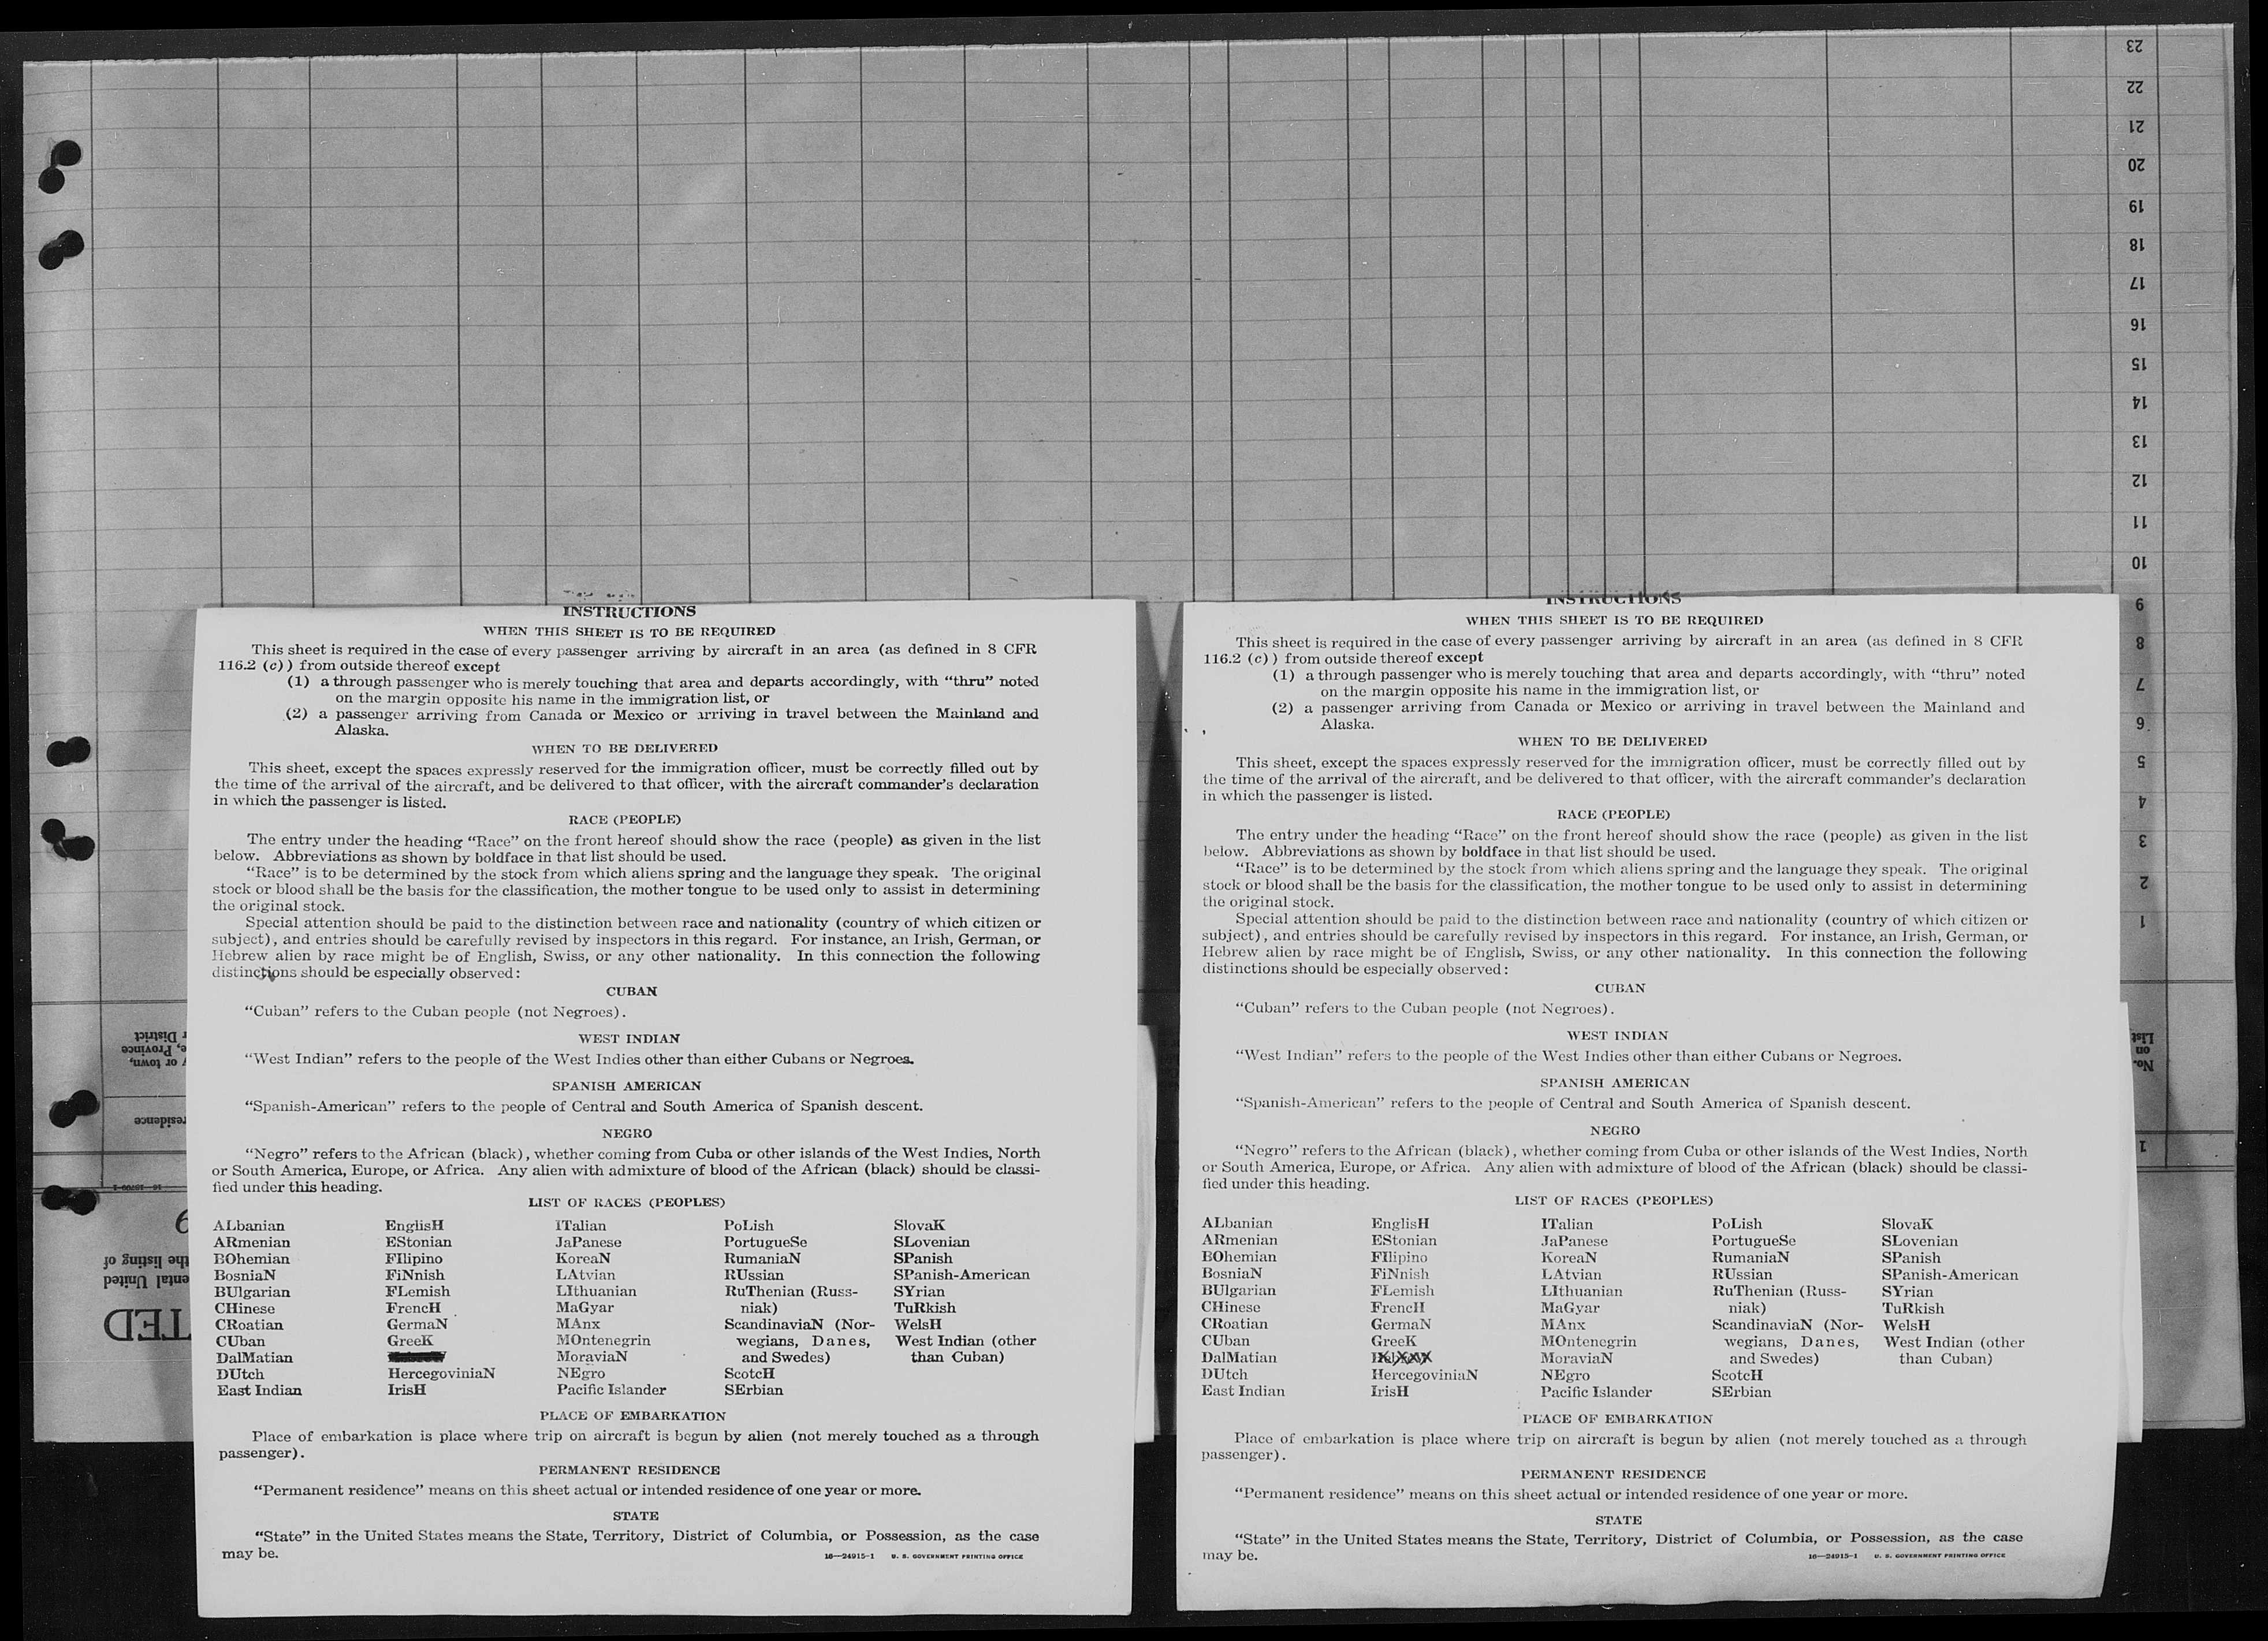 INSTRUCTIONS
WHEN THIS SHEET IS TO BE REQUIRED
This sheet is required in the case of every passenger arriving by aircraft in an area (as defined in 8 CFR
116.2 (c)) from outside thereof except
(1) a through passenger who is merely touching that area and departs accordingly, with “thru” noted
on the margin opposite his name in the immigration list, or
(2) a passenger arriving from Canada or Mexico or arriving in travel between the Mainland and
Alaska.
WHEN TO BE DELIVERED
This sheet, except the spaces expressly reserved for the immigration officer, must be correctly filled out by
the time of the arrival of the aircraft, and be delivered to that officer, with the aircraft commander’s declaration
in which the passenger is listed.
RACE (PEOPLE)
The entry under the heading “Race” on the front hereof should show the race (people) as given in the list
below. Abbreviations as shown by boldface in that list should be used.
“Race” is to be determined by the stock from which aliens spring and the language they speak. The original
stock or blood shall be the basis for the classification, the mother tongue to be used only to assist in determining
the original stock.
Special attention should be paid to the distinction between race and nationality (country of which citizen or
subject), and entries should be carefully revised by inspectors in this regard. For instance, an Irish, German, or
Hebrew alien by race might be of English, Swiss, or any other nationality. In this connection the following
distinctions should be especially observed:
CUBAN
“Cuban” refers to the Cuban people (not Negroes).
WEST INDIAN
“West Indian” refers to the people of the West Indies other than either Cubans or Negroes.
SPANISH AMERICAN
“Spanish-American” refers to the people of Central and South America of Spanish descent.
NEGRO
“Negro” refers to the African (black), whether coming from Cuba or other islands of the West Indies, North
or South America, Europe, or Africa. Any alien with admixture of blood of the African (black) should be classi-
fied under this heading.
LIST OF RACES (PEOPLES)
ALbanian EnglisH ITalian PoLish SlovaK
ARmenian EStonian JaPanese PortugueSe SLovenian
BOhemian FIlipino KoreaN RumaniaN SPanish
BosniaN FiNnish LAtvian RUssian SPanish-American
BUlgarian FLemish LIthuanian RuThenian (Russ- SYrian
CHinese FrencH MaGyar niak) TuRkish
CRoatian GermaN MAnx ScandinaviaN (Nor- WelsH
CUban GreeK MOntenegrin wegians, Danes, West Indian (other
DalMatian MoraviaN and Swedes) than Cuban)
DUtch HercegoviniaN NEgro ScotcH
East Indian IrisH Pacific Islander SErbian
PLACE OF EMBARKATION
Place of embarkation is place where trip on aircraft is begun by alien (not merely touched as a through
passenger).
PERMANENT RESIDENCE
“Permanent residence” means on this sheet actual or intended residence of one year or more.
STATE
“State” in the United States means the State, Territory, District of Columbia, or Possession, as the case
may be.
16—24915-1 U. S. GOVERNMENT PRINTING OFFICE
INSTRUCTIONS
WHEN THIS SHEET IS TO BE REQUIRED
This sheet is required in the case of every passenger arriving by aircraft in an area (as defined in 8 CFR
116.2 (c)) from outside thereof except
(1) a through passenger who is merely touching that area and departs accordingly, with “thru” noted
on the margin opposite his name in the immigration list, or
(2) a passenger arriving from Canada or Mexico or arriving in travel between the Mainland and
Alaska.
WHEN TO BE DELIVERED
This sheet, except the spaces expressly reserved for the immigration officer, must be correctly filled out by
the time of the arrival of the aircraft, and be delivered to that officer, with the aircraft commander’s declaration
in which the passenger is listed.
RACE (PEOPLE)
The entry under the heading “Race” on the front hereof should show the race (people) as given in the list
below. Abbreviations as shown by boldface in that list should be used.
“Race” is to be determined by the stock from which aliens spring and the language they speak. The original
stock or blood shall be the basis for the classification, the mother tongue to be used only to assist in determining
the original stock.
Special attention should be paid to the distinction between race and nationality (country of which citizen or
subject), and entries should be carefully revised by inspectors in this regard. For instance, an Irish, German, or
Hebrew alien by race might be of English, Swiss, or any other nationality. In this connection the following
distinctions should be especially observed:
CUBAN
“Cuban” refers to the Cuban people (not Negroes).
WEST INDIAN
“West Indian” refers to the people of the West Indies other than either Cubans or Negroes.
SPANISH AMERICAN
“Spanish-American” refers to the people of Central and South America of Spanish descent.
NEGRO
“Negro” refers to the African (black), whether coming from Cuba or other islands of the West Indies, North
or South America, Europe, or Africa. Any alien with admixture of blood of the African (black) should be classi-
fied under this heading.
LIST OF RACES (PEOPLES)
ALbanian EnglisH ITalian PoLish SlovaK
ARmenian EStonian JaPanese PortugueSe SLovenian
BOhemian FIlipino KoreaN RumaniaN SPanish
BosniaN FiNnish LAtvian RUssian SPanish-American
BUlgarian FLemish LIthuanian RuThenian (Russ- SYrian
CHinese FrencH MaGyar niak) TuRkish
CRoatian GermaN MAnx ScandinaviaN (Nor- WelsH
CUban GreeK MOntenegrin wegians, Danes, West Indian (other
DalMatian MoraviaN and Swedes) than Cuban)
DUtch HercegoviniaN NEgro ScotcH
East Indian IrisH Pacific Islander SErbian
PLACE OF EMBARKATION
Place of embarkation is place where trip on aircraft is begun by alien (not merely touched as a through
passenger).
PERMANENT RESIDENCE
“Permanent residence” means on this sheet actual or intended residence of one year or more.
STATE
“State” in the United States means the State, Territory, District of Columbia, or Possession, as the case
may be.
16—24915-1 U. S. GOVERNMENT PRINTING OFFICE
TED
ental United
the listing of
residence
or town,
e, Province
r District
1
No.
on
List
1
2
3
4
5
6
7
8
9
10
11
12
13
14
15
16
17
18
19
20
21
22
23